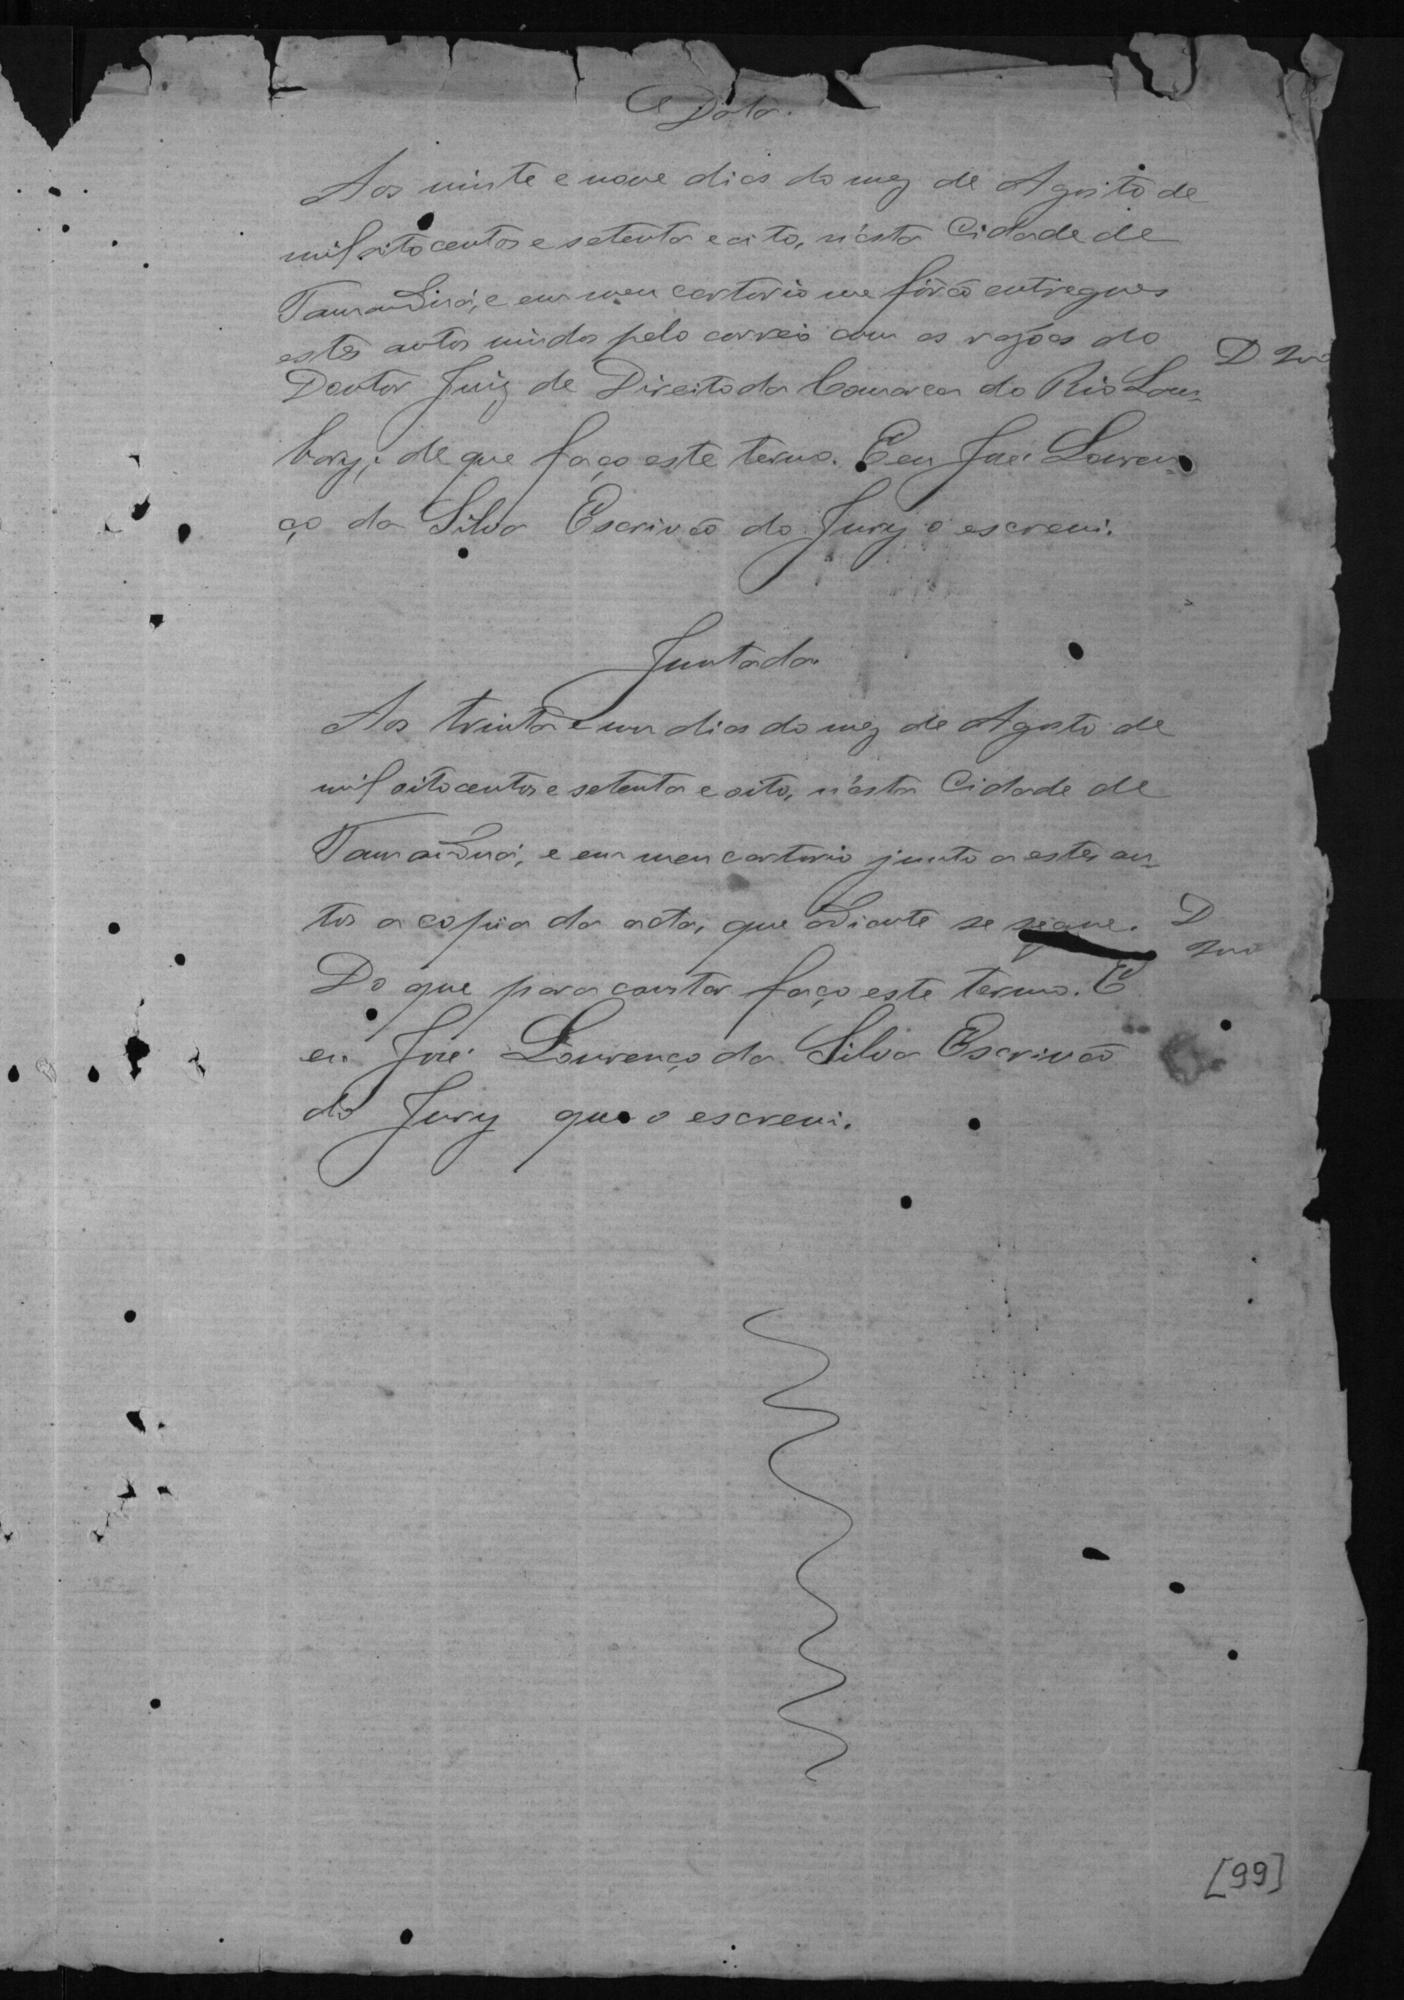 Data.
Aos vinte e nove dias do mez de Agosto de
mil oitocentos e setenta e oito, n'esta Cidade de
Tamanduá, e em meu cartorio me forão entregues
estes autos vindos pelo correio com as razões do
Doutor Juiz de Direito da Comarca do Rio Lam-
bary, de que faço este termo. E eu José Louren-
ço da Silva Escrivão do Jury o escrevi.
D.
Juntada
Aos trinta e um dias do mez de Agosto de
mil oitocentos e setenta e oito, n'esta Cidade de
Tamanduá, e em meu cartorio junto a estes au-
tos a copia da acta, que adiante se segue.
D
Do que para constar faço este termo. E
eu José Lourenço da Silva Escrivão
do Jury que o escrevi.
[99]